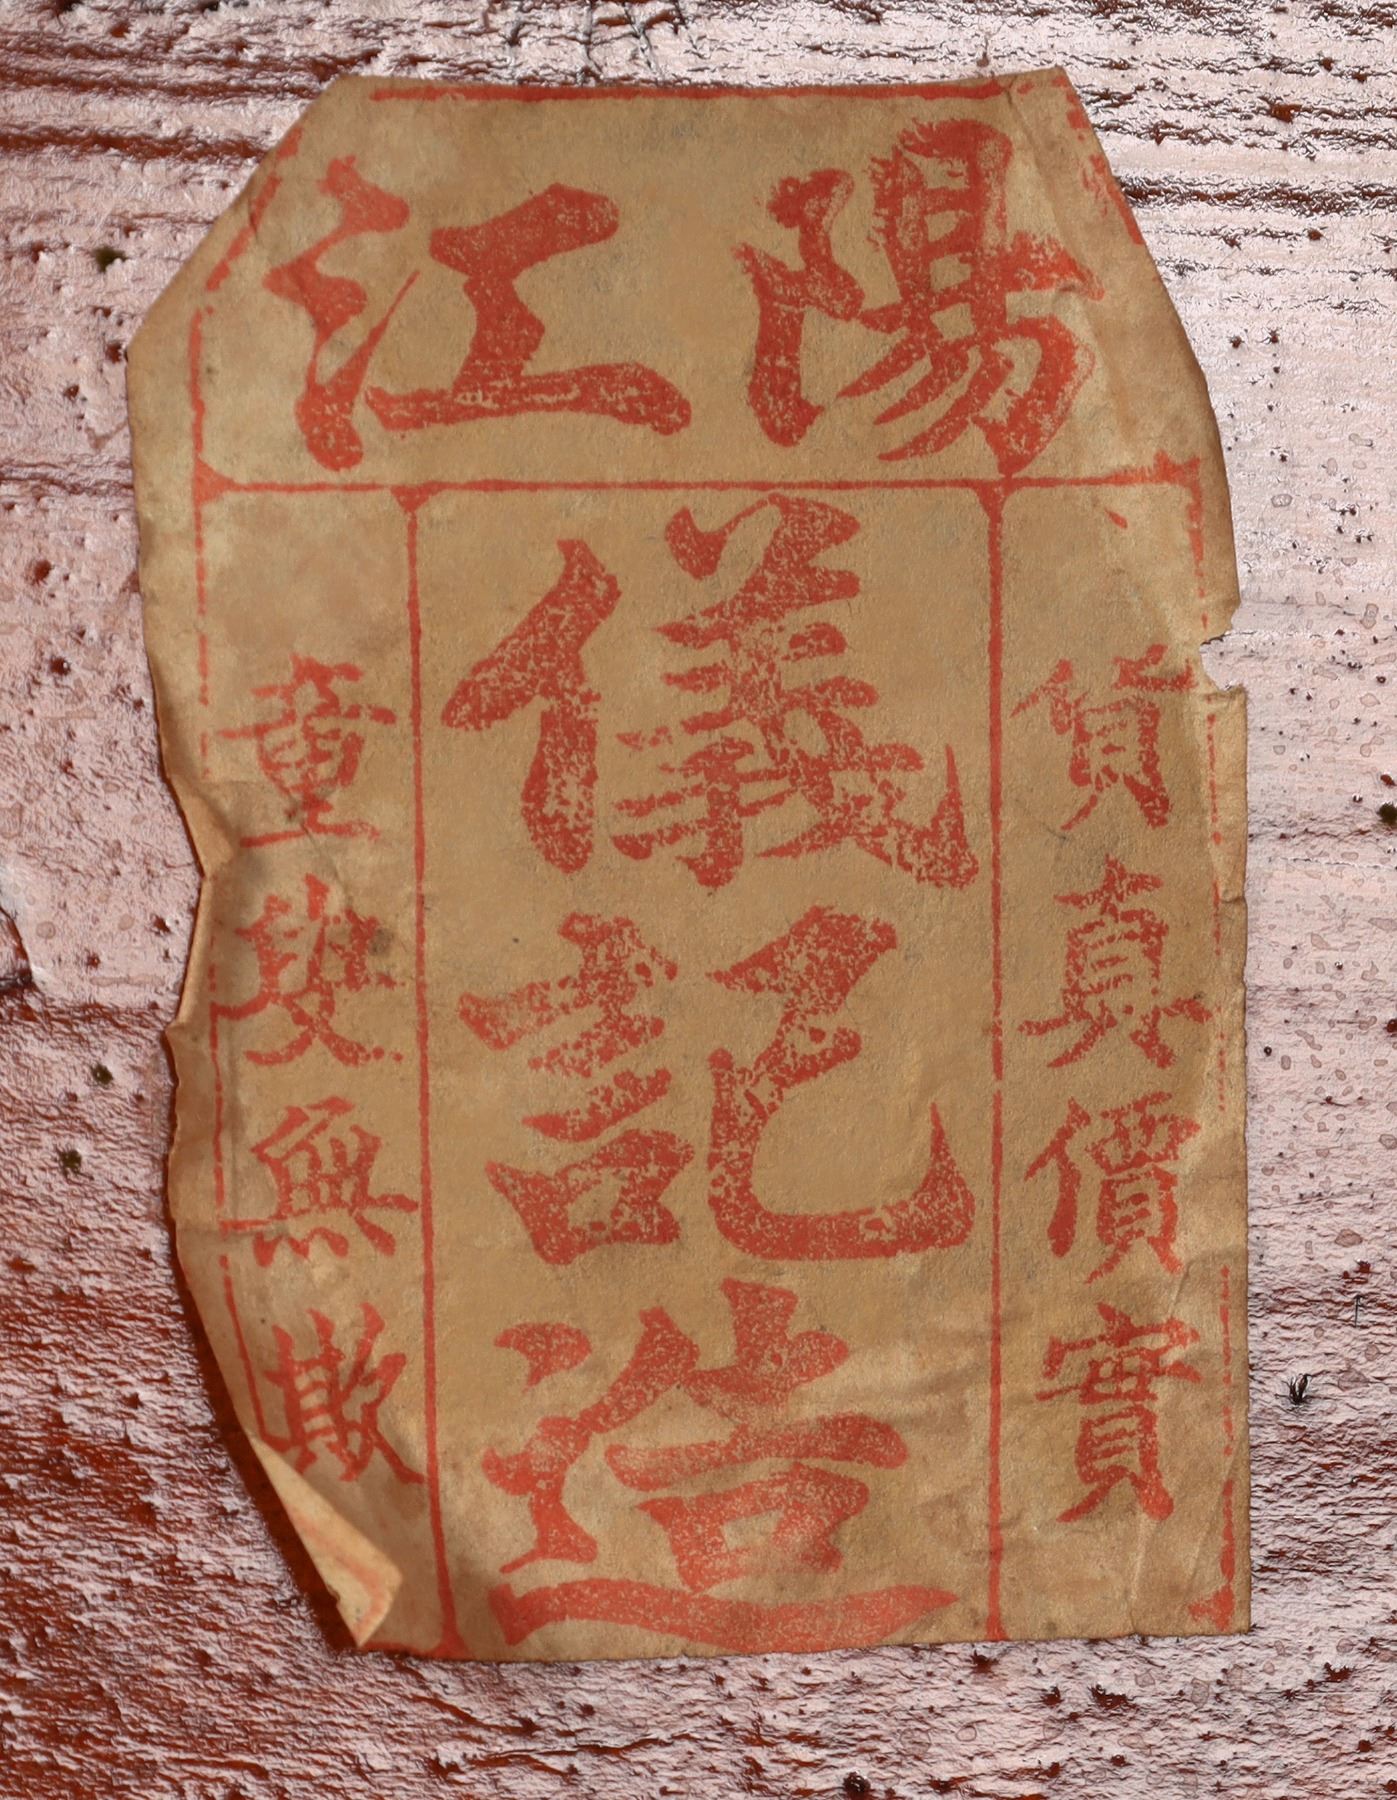 陽江
貨真價實
儀記造
童叟無欺